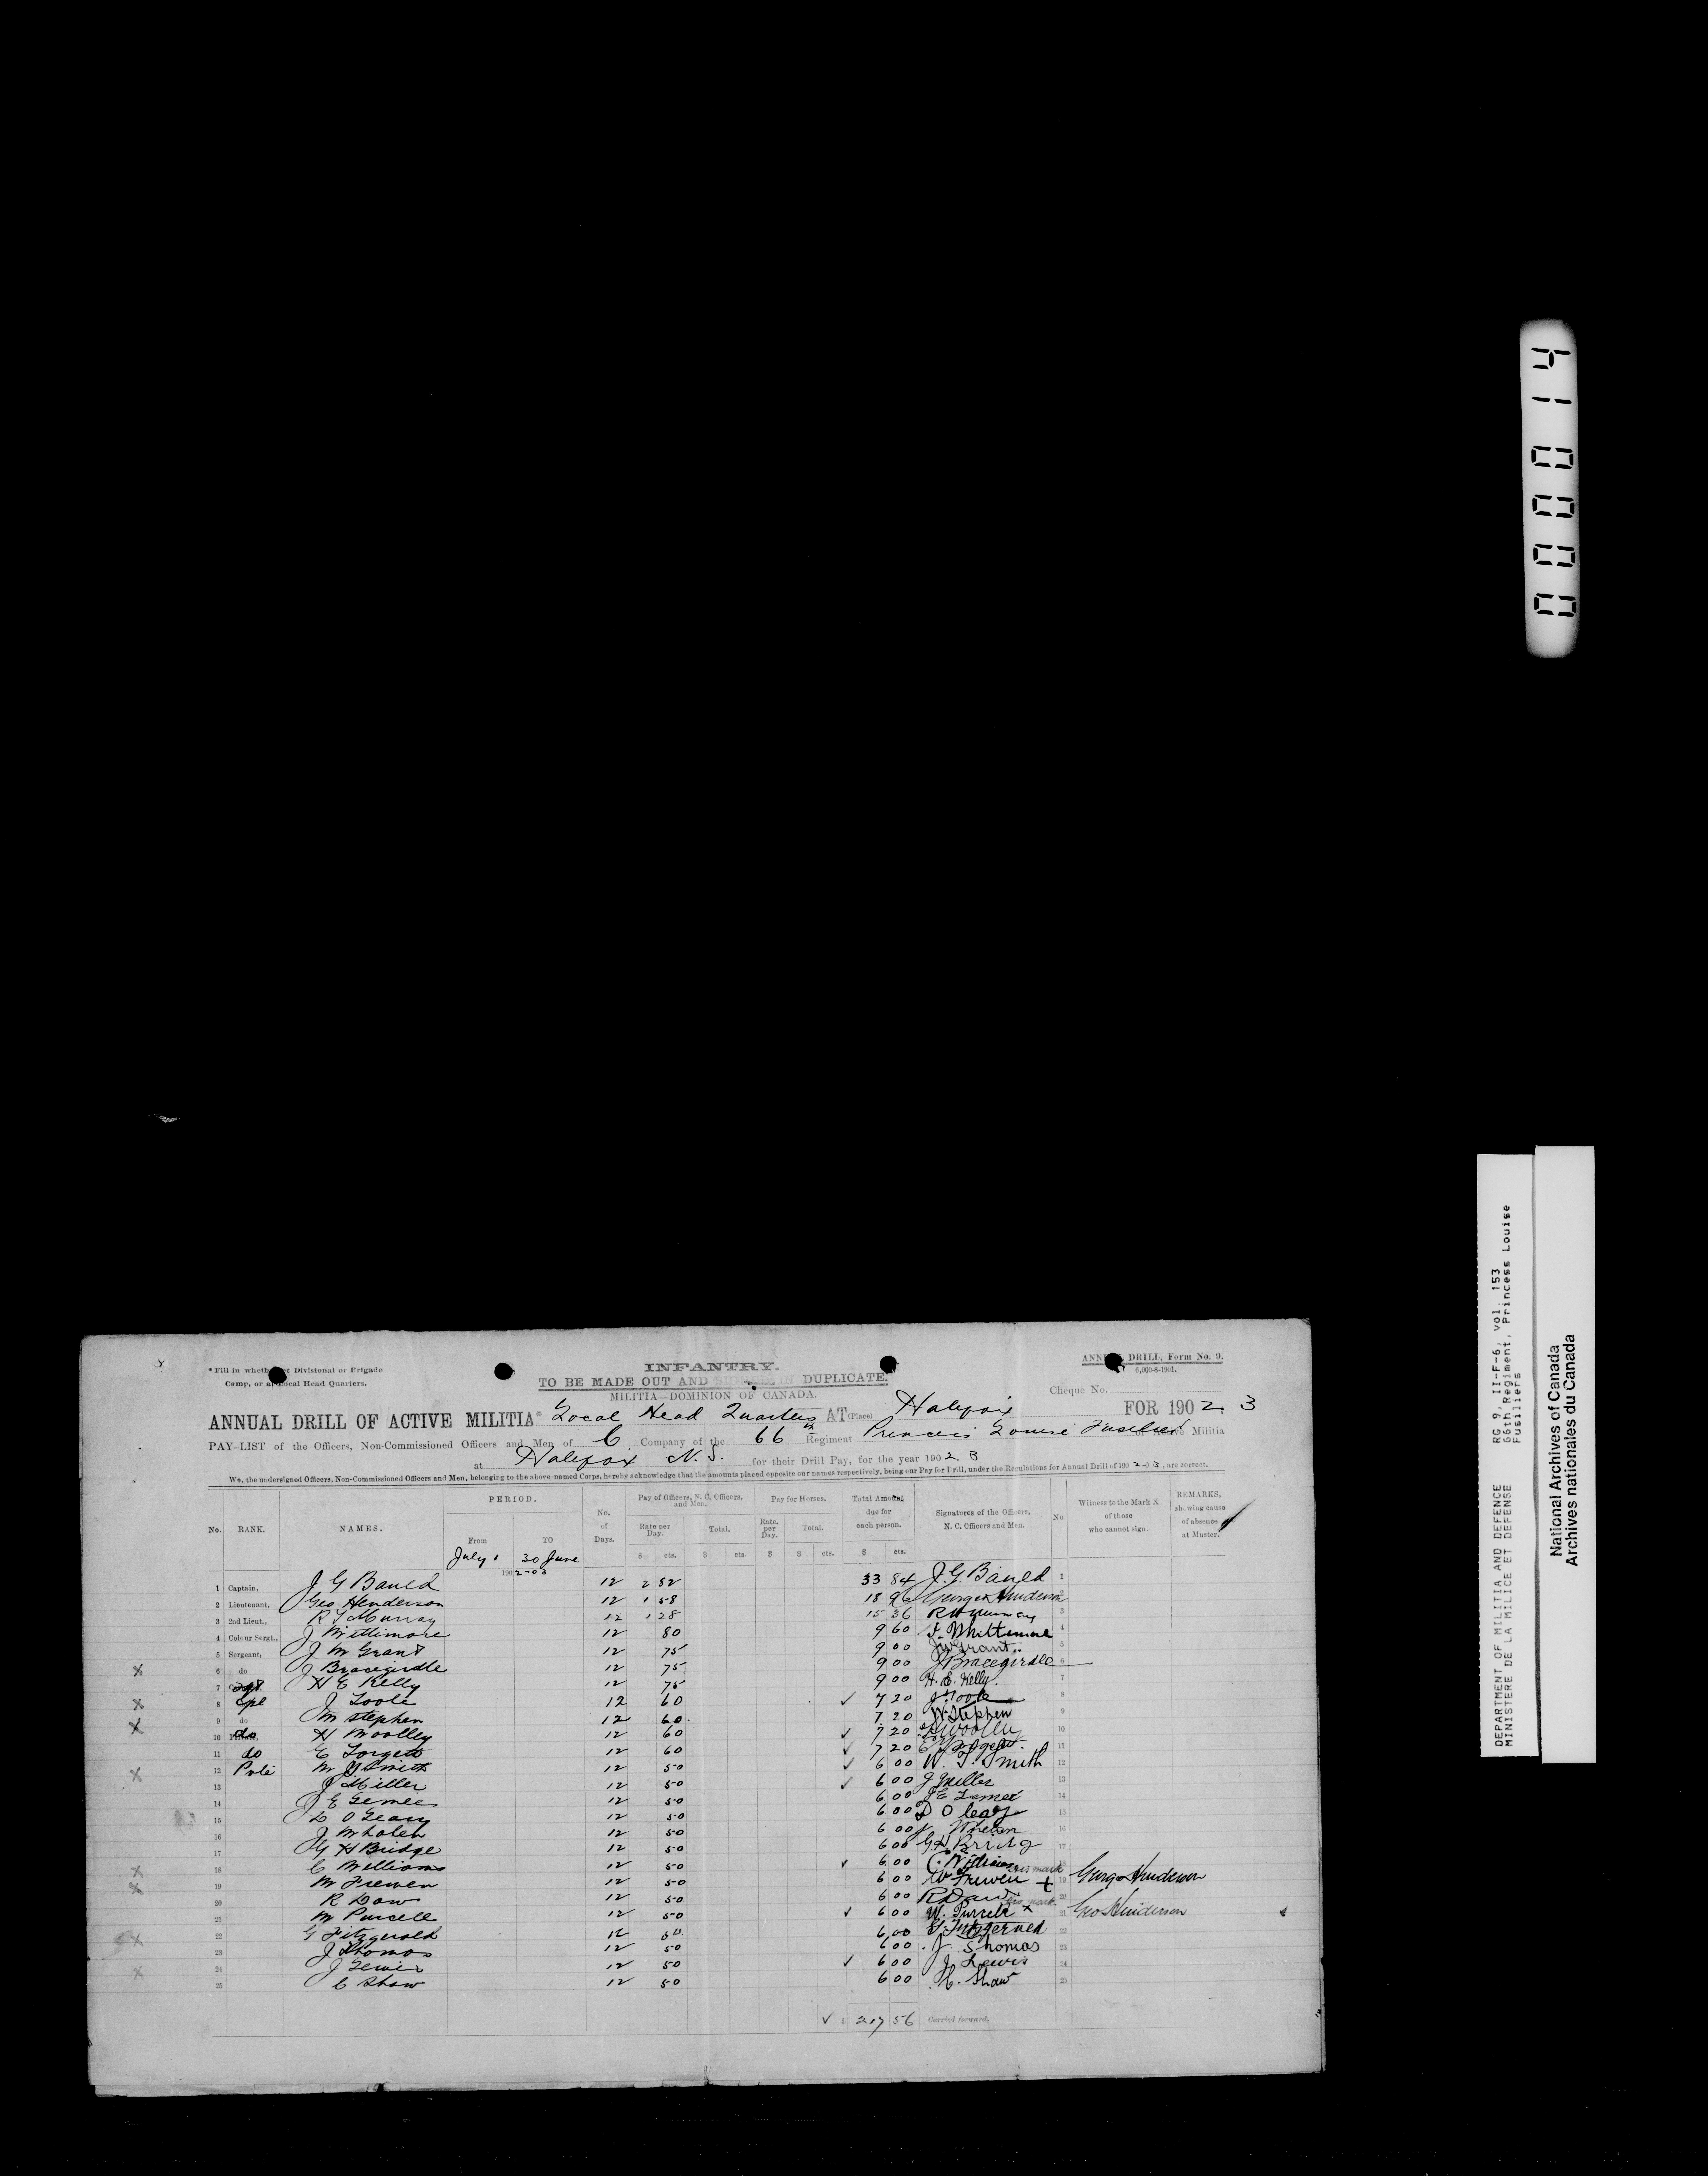 * Fill in whether at Divisional or Brigade
Camp, or at Local Head Quarters.
INFANTRY.
TO BE MADE OUT AND DUPLICATE.
MILITIA—DOMINION OF CANADA.
ANNUAL DRILL, Form No. 9.
6,000-8-1901.
Cheque No.
ANNUAL DRILL OF ACTIVE MILITIA* Local Head Quarters AT (Place) Halifax FOR 190 2 3
PAY-LIST of the Officers, Non-Commissioned Officers and Men of C Company of the 66th Regiment Princess Louise Fusiliers Militia
at Halifax N.S. for their Drill Pay, for the year 190 2 3
We, the undersigned Officers, Non-Commissioned Officers and Men, belonging to the above-named Corps, hereby acknowledge that the amounts placed opposite our names respectively, being our Pay for Drill, under the Regulations for Annual Drill of 190 2-03, are correct.
No. RANK. NAMES. PERIOD. From July 1 TO 30 June 190 2-03 No. of Days. Pay of Officers, N. C. Officers, and Men. Rate per Day. $ cts. Total. $ cts. Pay for Horses. Rate. per Day. $ Total. $ cts. Total Amount due for each person. $ cts. Signatures of the Officers, N. C. Officers and Men. No. Witness to the Mark X of those who cannot sign. REMARKS, showing cause of absence at Muster.
1 Captain, J G Bauld 12 2 82 33 84 J. G. Bauld 1
2 Lieutenant, Geo Henderson 12 1 58 18 96 George Henderson 2
3 2nd Lieut., R Murray 12 1 28 15 36 R Murray 3
4 Colour Sergt., J Wittimore 12 80 9 60 J. Whittemore 4
5 Sergeant, J M Grant 12 75 9 00 J W Grant 5
X 6 do J Bracegirdle 12 75 9 00 J Bracegirdle 6
7 Sgt H E Kelly 12 75 9 00 H. E. Kelly. 7
X 8 Cpl J Toole 12 60 ✓ 7 20 J Toole 8
9 do W Stephen 12 60 7 20 W Stephen 9
X 10 do H Woolley 12 60 ✓ 7 20 H Woolley 10
11 do 12 60 ✓ 7 20 11
12 Pvte W J Smith 12 50 ✓ 6 00 W. J. Smith 12
X 13 J Miller 12 50 ✓ 6 00 J Miller 13
14 J E 12 50 6 00 J E 14
15 D O Leary 12 50 6 00 D O leary 15
16 J Whalen 12 50 6 00 J Whelan 16
17 G H Bridge 12 50 6 00 G H Bridg 17
X 18 C Williams 12 50 ✓ 6 00 C. Williams 18
X 19 W Frewen 12 50 6 00 W Frewen his mark X 19 George Henderson
20 R Daw 12 50 6 00 R Daw 20
21 W Purcell 12 50 ✓ 6 00 W. Purcell his mark X 21 Geo Henderson
X 22 G Fitzgerald 12 50 6 00 G Fitzgerald 22
23 J Thomas 12 50 6 00 J Thomas 23
X 24 J Lewis 12 50 ✓ 6 00 J Lewis 24
25 C Shaw 12 50 6 00 C. Shaw 25
✓ $ 217 56 Carried forward.
000014
DEPARTMENT OF MILITIA AND DEFENCE RG 9, II-F-6, vol. 153
MINISTERE DE LA MILICE ET DEFENSE 66th Regiment, Princess Louise
Fusiliers
National Archives of Canada
Archives nationales du Canada